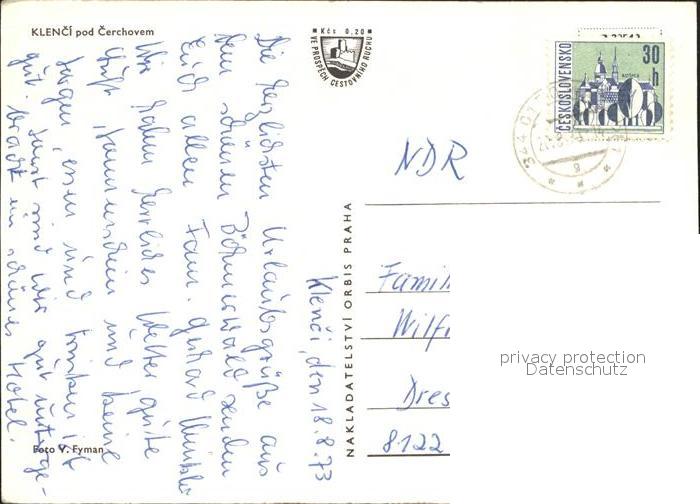 KLENČÍ pod Čerchovem
Kčs 0,20
VE PROSPĚCH CESTOVNÍHO RUCHU
ČESKOSLOVENSKO
30 h
NAKLADATELSTVÍ ORBIS PRAHA
Foto V. Fyman
Klenči, den 18.8.73
Die herzlichsten Urlaubsgrüße aus
dem schönen Böhmerwald senden
Euch allen Fam. Gerhard
Wir haben herrliches Wetter gute
Luft, Sonnenschein und keine
Sorgen, essen und trinken ist
gut. Sonst sind wir gut unterge-
bracht in schönes Hotel.
NDR
Famil
Wilf
Dres
8122
privacy protection
Datenschutz